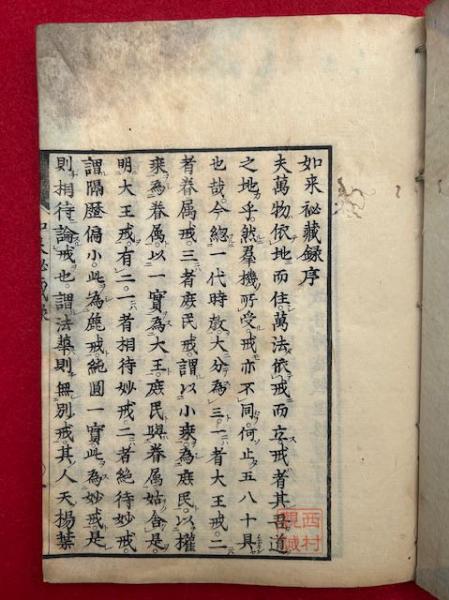 如来祕藏錄序
夫萬物依地而住。萬法依戒而立戒者其吾道
之地乎。然羣機所受戒亦不同。何止五八十具
也哉。今總一代時教。大分為三。一者大王戒。二
者眷属戒。三者庶民戒。謂以小乘為庶民。以權
乘為眷属以一實為大王。庶民與眷属姑舍是。
明大王戒有二。一者相待妙戒二者絕待妙戒
謂隔歷偏小。此為麁戒純圓一實。此為妙戒。是
則相待論戒也。謂法華則無別戒。其人天揚葉
如来祕藏錄
西村